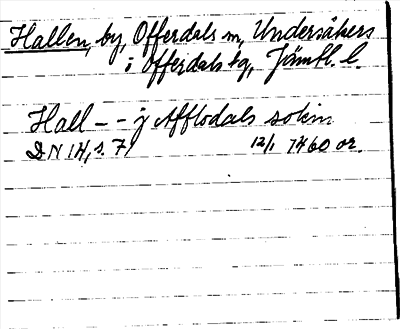 Hallen, by, Offerdals sn, Undersåkers
i Offerdals tg, Jämtl. l.
Hall - - j Afflodals sokn
DN 14, s. 71 12/1 1460 or.